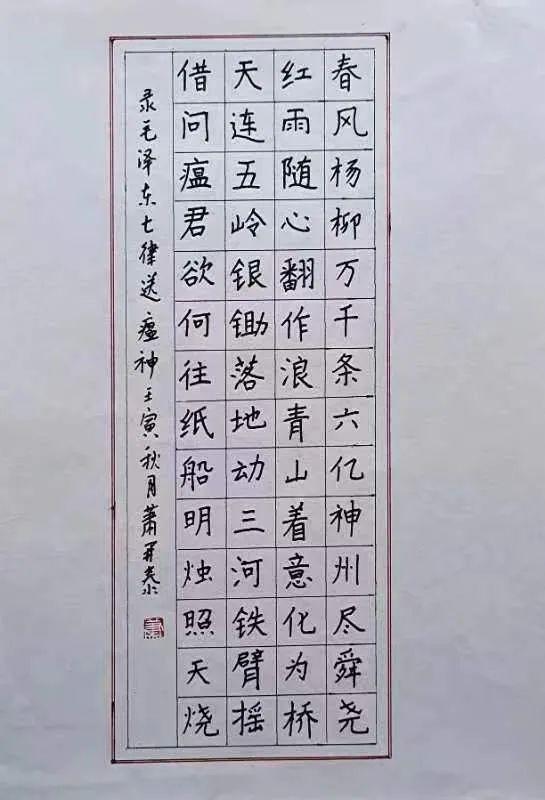 春风杨柳万千条六亿神州尽舜尧
红雨随心翻作浪青山着意化为桥
天连五岭银锄落地动三河铁臂摇
借问瘟君欲何往纸船明烛照天烧
录毛泽东七律送瘟神壬寅秋月萧开泰